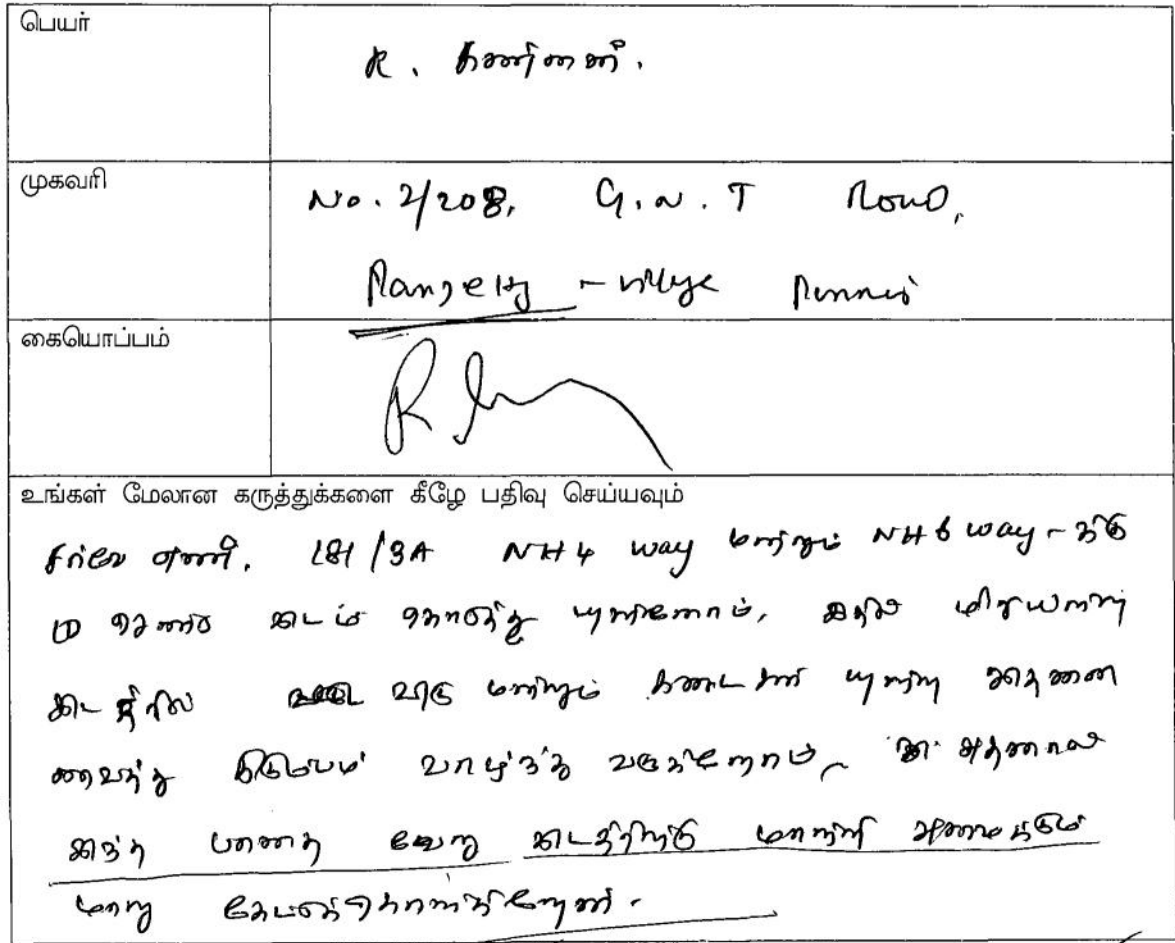 பெயர்
R. கண்ணன்.
முகவரி
No. 2/208, G.N.T Road,
village
கையொப்பம்
R
உங்கள் மேலான கருத்துக்களை கீழே பதிவு செய்யவும்
சர்வே எண். 181/3A NH 4 way மற்றும் NH 6 way - க்கு
இடம் கொடுத்து உள்ளோம், இதில் மீதியுள்ள
இடத்தில் வீடு மற்றும் கடைகள் உள்ளது இதனை
வைத்து குடும்பம் வாழ்ந்து வருகின்றோம், அதனால்
இந்த பாதை வேறு இடத்திற்கு மாற்றி அமைக்கும்
மாறு கேட்டுக்கொள்கிறேன்.